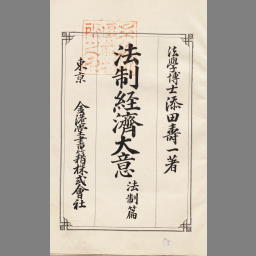 法學博士添田壽一著
法制經濟大意 法制篇
東京 金港堂書籍株式會社